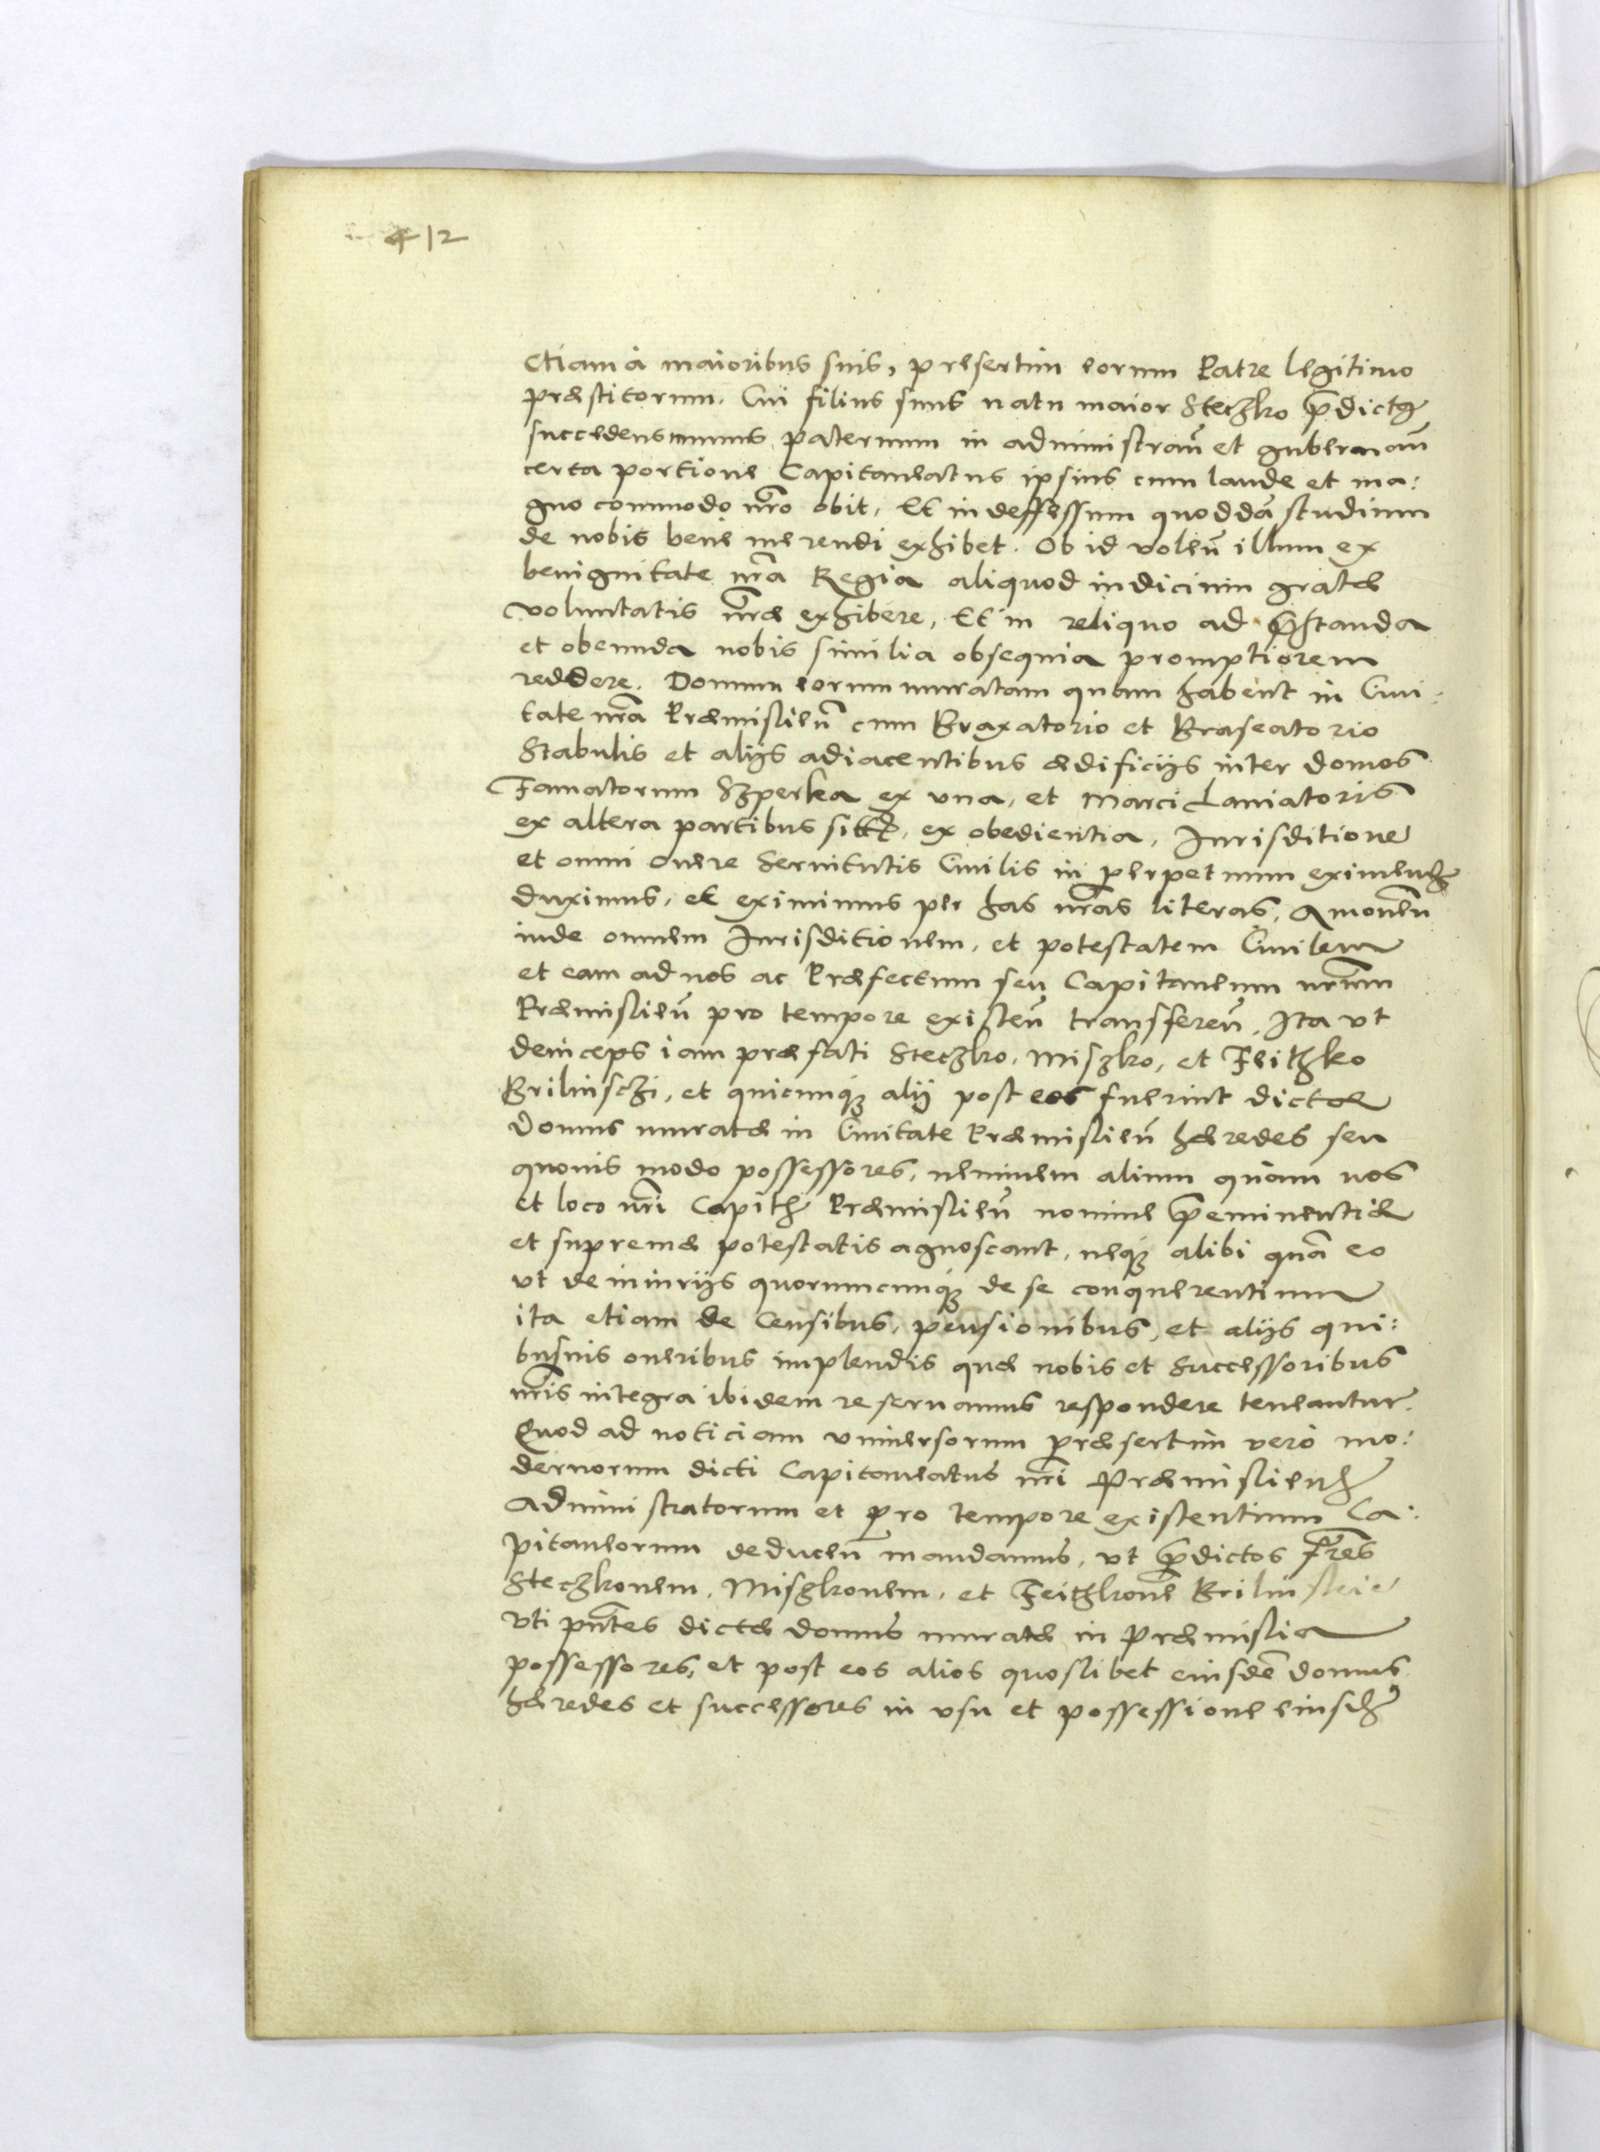 412
etiam à maioribus suis, presertim eorum Patre legitimo
præstitorum. Cui filius suus natu maior Steczko p̃dictꝫ
succedens munus paternum in administrañ et gubernañ
certa portione Capitaneatus ipsius cum laude et ma:
gno commodo nr̃o obit, Et indeffessum quoddã studium
de nobis bene merendi exhibet. Ob id voleñ illum ex
benignitate nr̃a Regia aliquod indicium gratæ
voluntatis nr̃æ exhibere, Et in reliquo ad p̃standa
et obeunda nobis similia obsequia promptiorem
reddere. Domum eorum muratam quam habent in Civi:
tate nr̃a Præmislieñ cum Braxatorio et Braseatorio
Stabulis et alijs adiacentibus ædificijs inter domos
Famatorum Szperka ex vna, et Marci Laniatoris
ex altera partibus sitꝫ, ex obedientia, Jurisditione
et omni onere Servitutis Civilis in perpetuum eximendꝫ
duximus, et eximimus per has nr̃as literas, Amoueñ
inde omnem Jurisditionem, et potestatem Civilem
et eam ad nos ac Præfectum seu Capitaneum nr̃um
Præmislieñ pro tempore existeñ transfereñ, Ita vt
deinceps iam præfati Steczko, Miszko, et Feitzko
Brilinsczi, et quicunqꝫ alij post eos fuerint dictæ
domus muratæ in Civitate Præmislieñ hæredes seu
quouis modo possessores, neminem alium quam nos
et loco nr̃i Capitꝫ Præmislieñ nomine p̃eminentiæ
et supremæ potestatis agnoscant, neqꝫ alibi quã eo
vt de iniurijs quorumcunqꝫ de se conquerentium
ita etiam de Censibus, pensionibus, et alijs qui:
busuis oneribus implendis quæ nobis et Successoribus
nr̃is integra ibidem reseruamus respondere teneantur.
Quod ad noticiam vniuersorum præsertim vero mo:
dernorum dicti Capitaneatus nr̃i Præmislienꝫ
Administratorum et pro tempore existentium Ca:
pitaneorum deduceñ mandamus, vt p̃dictos fr̃es
Steczkonem, Miszkonem, et Feitzkonẽ Brilinscie
vti pñtes dictæ domus muratæ in Præmislia
possessores, et post eos alios quoslibet eiusdẽ domus
hæredes et successores in vsu et possessione eiusdꝫ